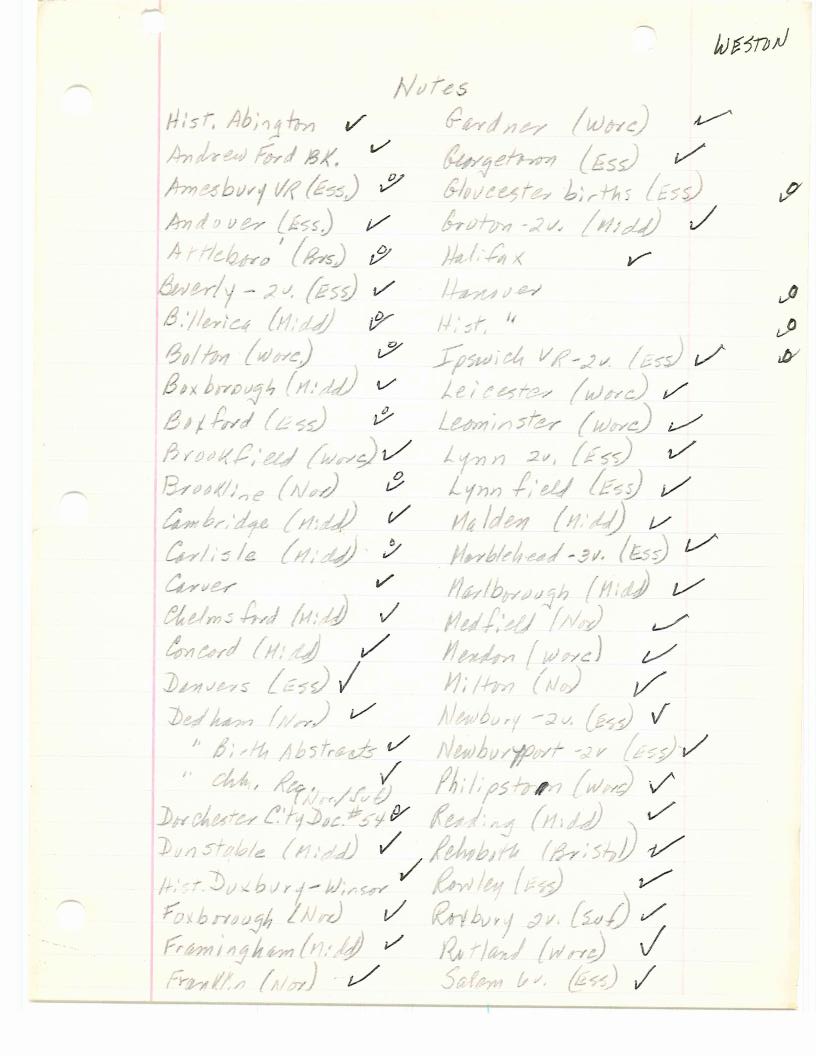 WESTON
Notes
Hist. Abington ✓
Andrew Ford BK. ✓
Amesbury VR (Ess.) ✓
Andover (Ess.) ✓
Attleboro' (Brs.) ✓
Beverly - 2v. (Ess) ✓
Billerica (Midd) ✓
Bolton (Worc.) ✓
Boxborough (Midd) ✓
Boxford (Ess) ✓
Brookfield (Worc) ✓
Brookline (Nor) ✓
Cambridge (Midd) ✓
Carlisle (Midd) ✓
Carver ✓
Chelmsford (Midd) ✓
Concord (Midd) ✓
Danvers (Ess) ✓
Dedham (Nor) ✓
" Birth Abstracts ✓
" Chh. Rec. ✓
(Nor/Suf)
Dorchester City Doc. #54 ✓
Dunstable (Midd) ✓
Hist. Duxbury - Winsor ✓
Foxborough (Nor) ✓
Framingham (Midd) ✓
Franklin (Nor) ✓
Gardner (Worc) ✓
Georgetown (Ess) ✓
Gloucester births (Ess) ✓
Groton - 2v. (Midd) ✓
Halifax ✓
Hanover ✓
Hist. " ✓
Ipswich VR - 2v. (Ess) ✓ ✓
Leicester (Worc) ✓
Leominster (Worc) ✓
Lynn 2v. (Ess) ✓
Lynnfield (Ess) ✓
Malden (Midd) ✓
Marblehead - 3v. (Ess) ✓
Marlborough (Midd) ✓
Medfield (Nor) ✓
Mendon (Worc) ✓
Milton (Nor) ✓
Newbury - 2v. (Ess) ✓
Newburyport - 2v (Ess) ✓
Philipston (Worc) ✓
Reading (Midd) ✓
Rehoboth (Bristol) ✓
Rowley (Ess) ✓
Roxbury 2v. (Suf) ✓
Rutland (Worc) ✓
Salem 6v. (Ess) ✓